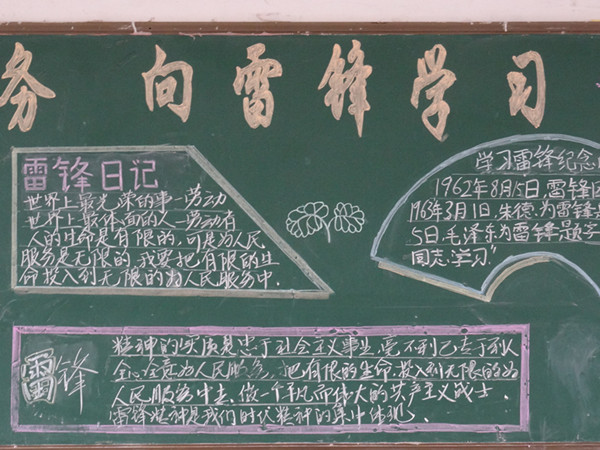 务 向雷锋学习
雷锋日记
世界上最光荣的事—劳动
世界上最体面的人—劳动者
人的生命是有限的,可是为人民
服务是无限的,我要把有限的生
命投入到无限的为人民服务中.
学习雷锋纪念
1962年8月15日,雷锋
1963年3月1日,朱德.为雷锋
5日,毛泽东为雷锋题字
同志学习"
雷锋
精神的实质是忠于社会主义事业,毫不利己专门利人
全心全意为人民服务,把有限的生命,投入到无限的为
人民服务中去,做一个平凡而伟大的共产主义战士.
雷锋精神是我们时代精神的集中体现.